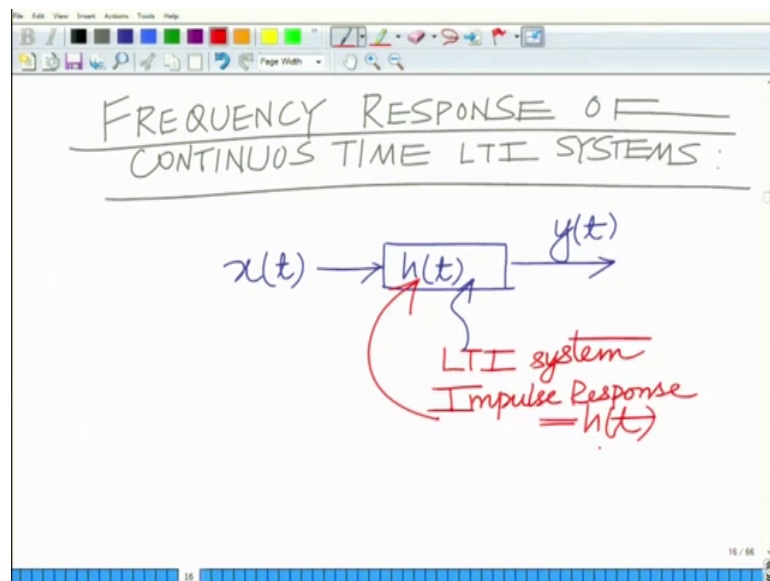 File Edit View Insert Actions Tools Help
B I
Page Width
FREQUENCY RESPONSE OF
CONTINUOS TIME LTI SYSTEMS:
x(t) h(t) y(t)
LTI system
Impulse Response
= h(t)
16 / 66
16